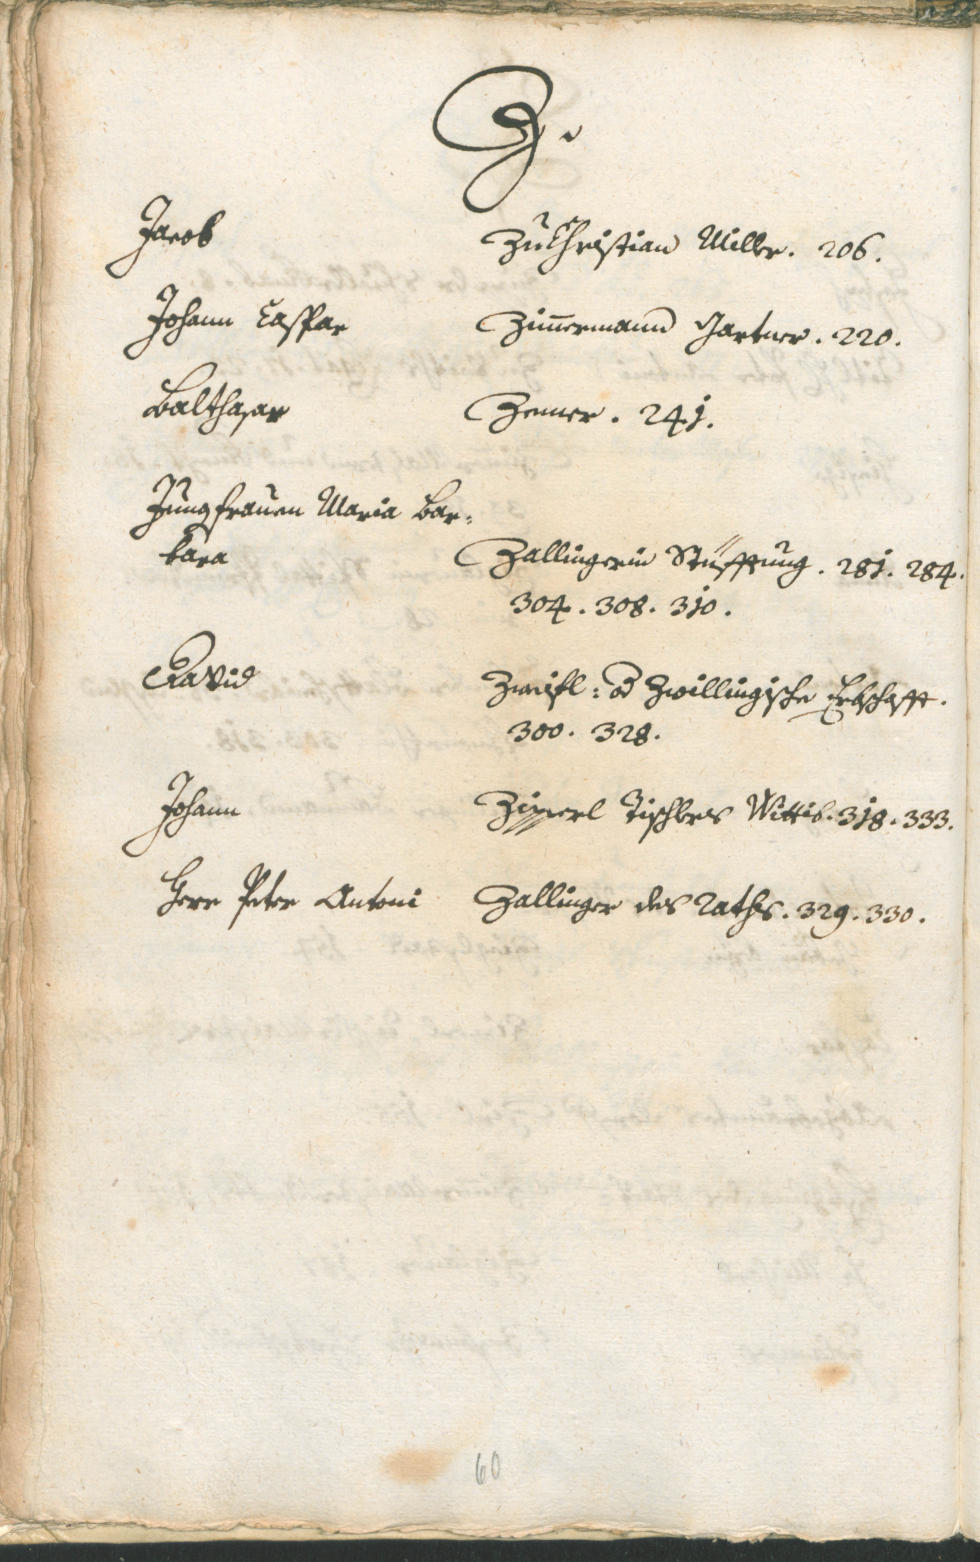 Z.
Jacob Zu Christian Miller. 206.
Johann Casspar Zim̅ermann Gartner. 220.
Balthasar Zemer. 241.
Jungfrauen Maria Bar-
bara Zallingerin Stüfftung. 281. 284.
304. 308. 310.
David Zweifl: Zwillingische Erbschafft.
300. 328.
Johann Zipperl Tischlers Wittib. 318. 333.
Herr Peter Antoni Zallinger des Raths. 329. 330.
60